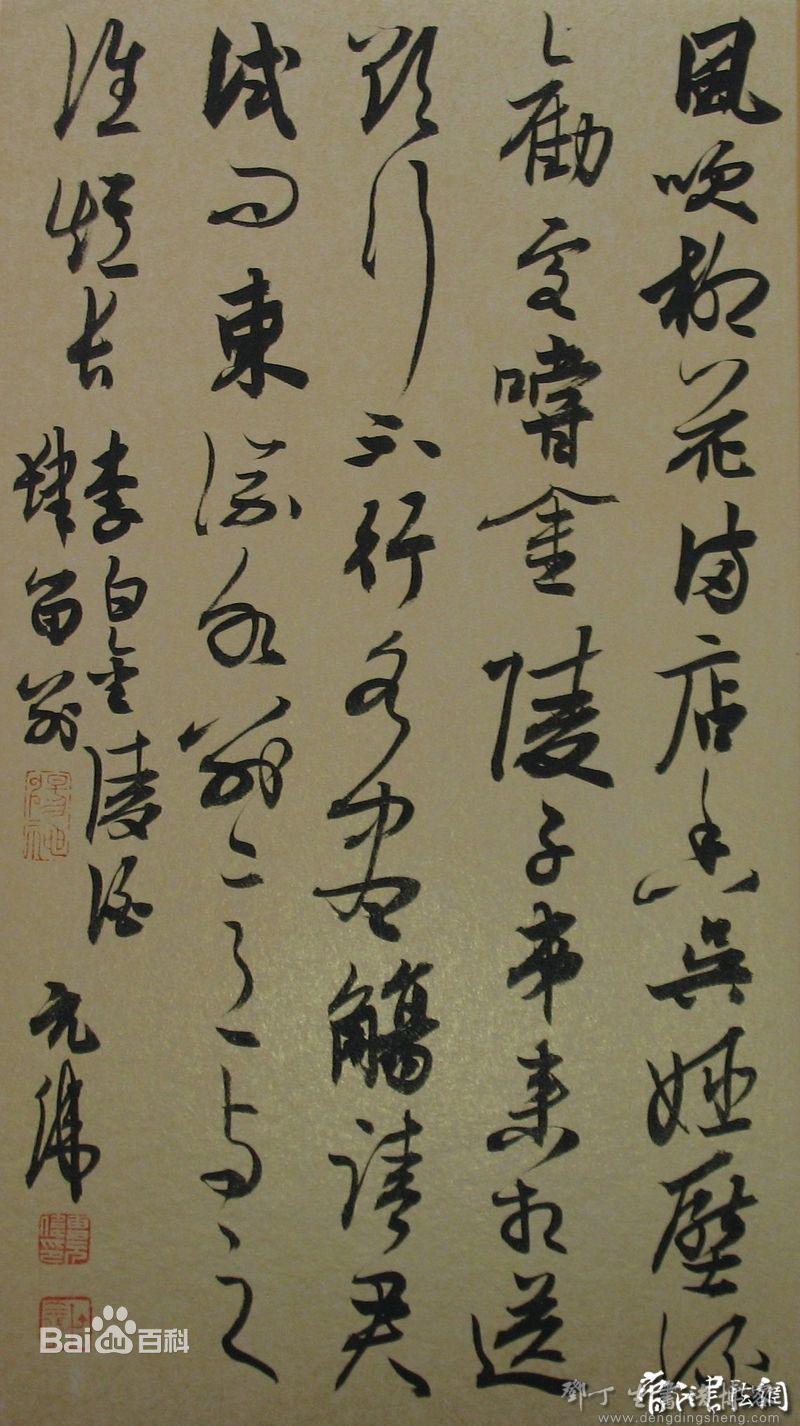 風吹柳花滿店香吳姬壓酒
勸客嚐金陵子弟來相送
欲行不行各盡觴請君
試問東流水別意與之
誰短長
李白金陵酒
肆留別
元偉
Bai du 百科
www.dengdingsheng.com